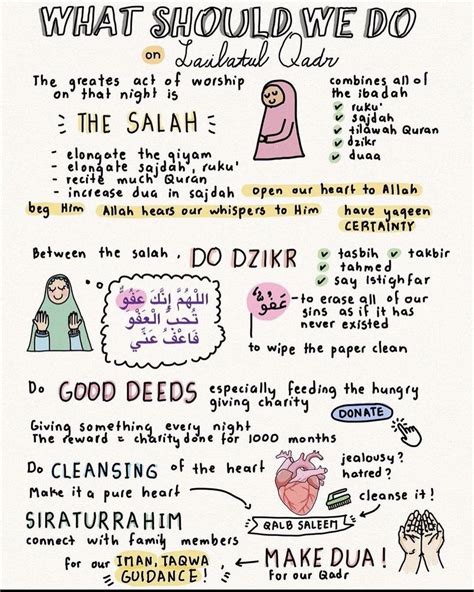 WHAT SHOULD WE DO
on Lailatul Qadr
The greates act of worship
on that night is
THE SALAH:
- elongate the qiyam
- elongate sajdah, ruku'
- recite much Quran
- increase dua in sajdah
combines all of
the ibadah
ruku'
sajdah
tilawah Quran
dzikr
duaa
open our heart to Allah
beg Him Allah hears our whispers to Him have yaqeen
CERTAINTY
Between the salah, DO DZIKR
tasbih takbir
tahmed
say Istighfar
اللَّهُمَّ إِنَّكَ عَفُوٌّ
تُحِبُّ الْعَفْوَ
فَاعْفُ عَنِّي
عَفُوٌّ - to erase all of our
sins as if it has
never existed
to wipe the paper clean
Do GOOD DEEDS especially feeding the hungry
giving charity
DONATE
Giving something every night
The reward = charity done for 1000 months
Do CLEANSING of the heart
Make it a pure heart
jealousy?
hatred?
cleanse it!
QALB SALEEM
SIRATURRAHIM
connect with family members
MAKE DUA!
for our Qadr
for our IMAN, TAQWA
GUIDANCE!